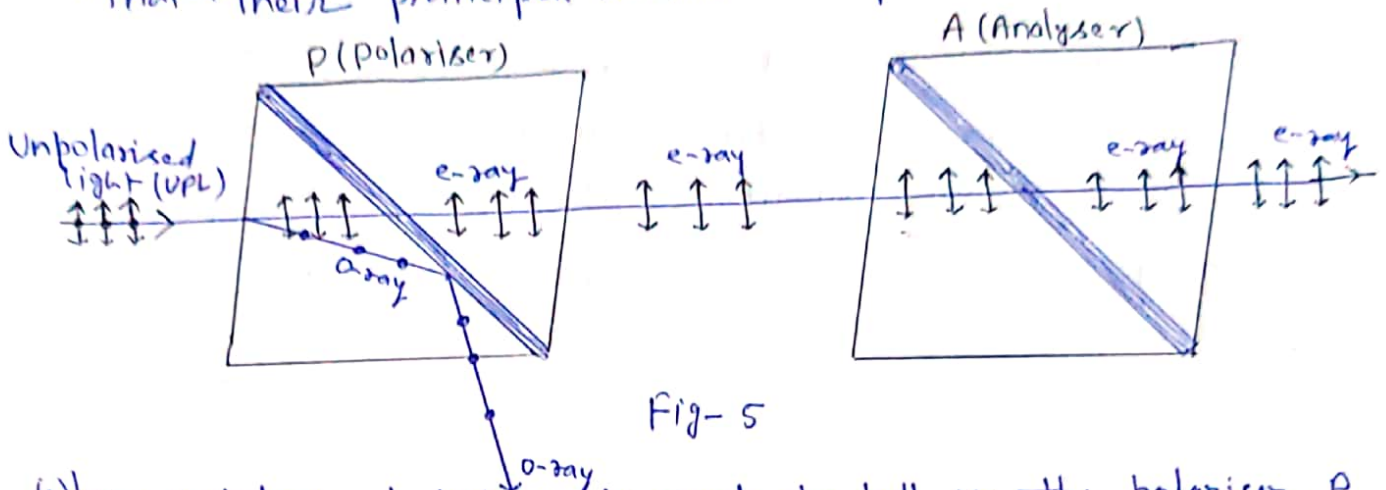 their
P (Polariser)
A (Analyser)
Unpolarised
light (UPL)
e-ray
e-ray
e-ray
e-ray
o-ray
Fig- 5
o-ray
polariser P